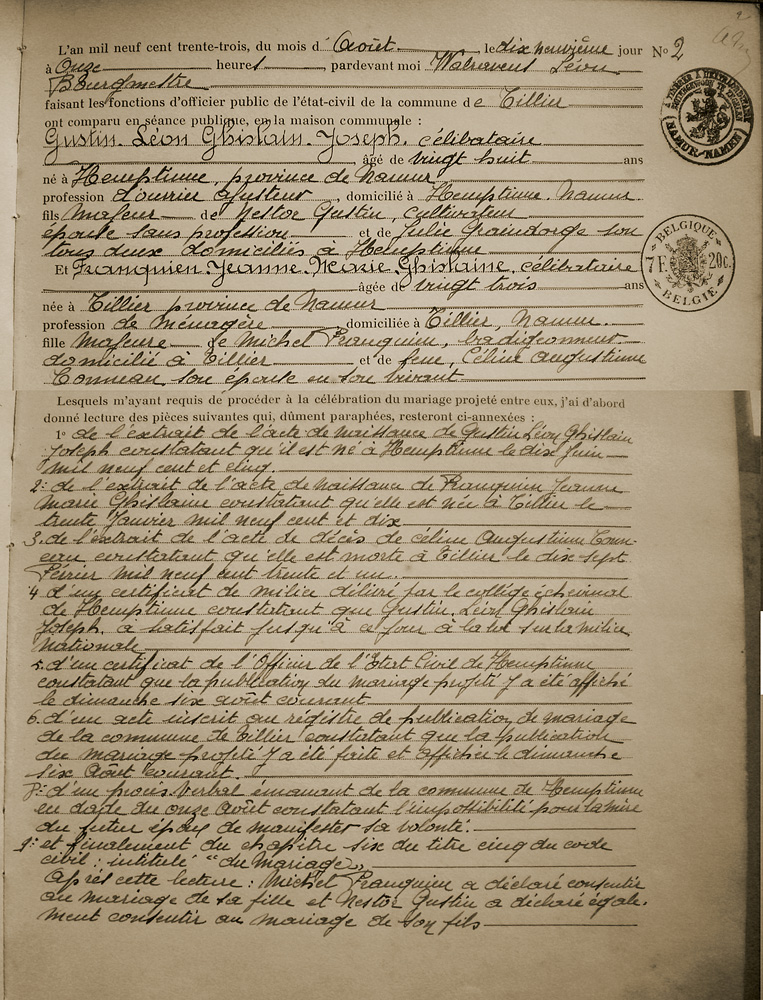 L'an mil neuf cent trente-trois, du mois d' Août, le dix neuvième jour N° 2
à Onze heures, pardevant moi Walravens Léon
Bourgmestre
faisant les fonctions d'officier public de l'état-civil de la commune de Tillier
ont comparu en séance publique, en la maison communale :
Gustin. Léon Ghislain. Joseph. célibataire
, âgé de vingt huit ans
né à Hemptinne, province de Namur
profession d'ouvrier ajusteur, domicilié à Hemptinne. Namur.
fils Majeur de Nestor Gustin, cultivateur
et de Julie Graindorge son
épouse sans profession
tous deux domiciliés à Hemptinne
Et Franquien. Jeanne. Marie. Ghislaine. célibataire
âgée de vingt trois ans
née à Tillier province de Namur
profession de Ménagère, domiciliée à Tillier, Namur.
fille Majeure de Michel Franquien, tradigeonneur
domicilié à Tillier et de feue, Céline Augustinne
Conneau son épouse en son vivant
Lesquels m'ayant requis de procéder à la célébration du mariage projeté entre eux, j'ai d'abord
donné lecture des pièces suivantes qui, dûment paraphées, resteront ci-annexées :
1° de l'extrait de l'acte de naissance de Gustin Léon Ghislain
Joseph constatant qu'il est né à Hemptinne le dix Juin
mil neuf cent et cinq.
2: de l'extrait de l'acte de naissance de Franquien Jeanne
Marie Ghislaine constatant qu'elle est née à Tillier le
trente Janvier mil neuf cent et dix
3. de l'extrait de l'acte de décès de céline Augustinne Conn-
eau constatant qu'elle est morte à Tillier le dix-sept
Février mil neuf cent trente et un.
4 d'un certificat de milice délivré par le collège échevinal
de Hemptinne constatant que Gustin. Léon Ghislain
Joseph. à satisfait jusqu'à ce jour à la loi sur la milice
nationale
5. d'un certificat de l'Officier de l'Etat Civil de Hemptinne
constatant que la publication du mariage projeté y a été affiché
le dimanche six août courant
6. d'un acte inscrit au régistre de publication de mariage
de la commune de Tillier constatant que la publication
du mariage projeté y a été faite et affichée le dimanche
six Août courant.
8: d'un procés-verbal émanant de la commune de Hemptinne
en date du onze Août constatant l'impossibilité pour la mère
du futur époux de manifester sa volonté.
9: et finalement du chapitre six du titre cinq du code
civil: intitulé "du Mariage"
Après cette lecture : Michel Franquien a déclaré consentir
au mariage de sa fille et Nestor Gustin a déclaré égale-
ment consentir au mariage de son fils
NAMUR-NAMEN
BELGIQUE
7 F. 20c.
BELGIË